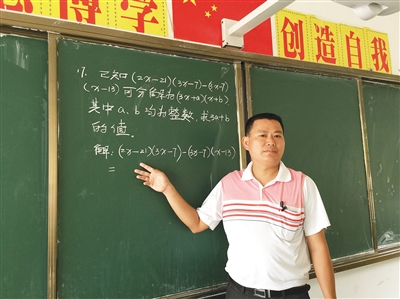 博学
创造自我
17. 已知(2x-21)(3x-7)-(3x-7)
(x-13)可分解为(3x+a)(x+b)
其中a、b均为整数,求3a+b
的值。
解:(2x-21)(3x-7)-(3x-7)(x-13)
=